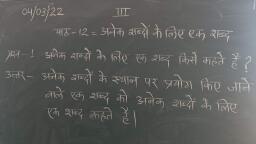 04/03/22 III
पाठ-12 = अनेक शब्दों के लिए एक शब्द
प्रश्न-1 अनेक शब्दों के लिए एक शब्द किसे कहते हैं ?
उत्तर- अनेक शब्दों के स्थान पर प्रयोग किए जाने
वाले एक शब्द को अनेक शब्दों के लिए
एक शब्द कहते हैं।